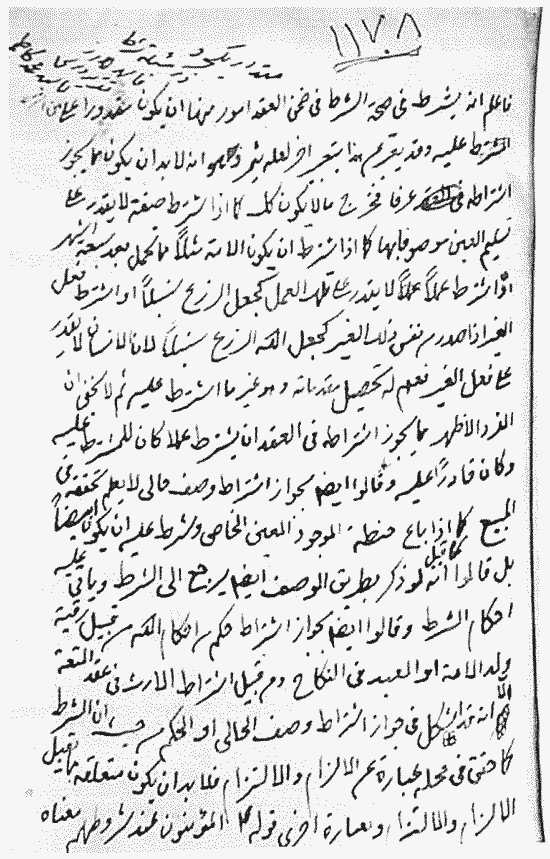 ١١٧٨
فاعلم انه يشترط في صحة الشرط في ضمن العقد امور منها ان يكون مقدورا
الشرط عليه وقد يعبر عن هذا بتعبير اخر لعله ثمر وهو انه لا بد ان يكون مما يجوز
اشتراطه في عرفا فخرج ما لا يكون كك كما اذا شرط صفة لا يقدر على
تسليم العين موصوفا بها كما اذا شرط ان يكون الامة مثلا مما تحمل بعد سنة اشهر
او اشترط عملا لا يقدر على ذلك العمل كجعل الزرع سنبلا او اشترط فعل
الغير اذا صدر من نفس ذلك الغير كجعل الله الزرع سنبلا لان الانسان لا يقدر
على فعل الغير نعم له تحصيل مقدماته وهو غير ما اشترط عليه ثم لا يخفى ان
الفرد الاظهر مما يجوز اشتراطه في العقد ان يشترط عملا كان للمشترط عليه
وكان قادرا عليه وقالوا ايضا بجواز اشتراط وصف حالي لا يعلم تحققه في
المبيع كما اذا باع حنطة الموجود المعين الخاص وشرط عليه ان يكون ايضا
بل قالوا كما قيل انه لو ذكر بطريق الوصف ايضا يرجع الى الشرط وياتي عليه
احكام الشرط وقالوا ايضا بجواز اشتراط حكم من احكام الله من قبيل رقية
ولد الامة او العبد في النكاح ومن قبيل اشتراط الارث في عقد المتعة
الا انه قد اشكل في جواز اشتراط وصف الحالي او الحكم من حيث ان الشرط
كما حقق في محله عبارة عن الالزام والالتزام فلا بد ان يكون متعلقه قبيل
الالزام والالتزام وبعبارة اخرى قوله المؤمنون عند شروطهم معناه